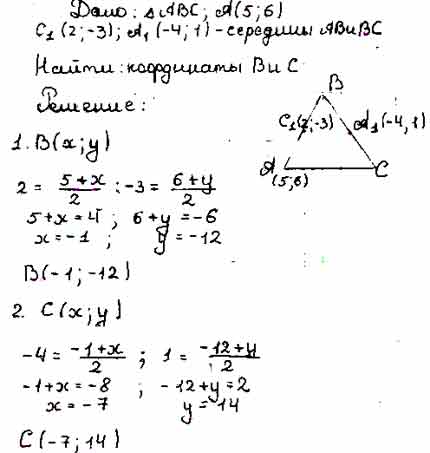 Дано: △ABC; A(5;6)
C₁(2;-3); A₁(-4;1) - середины AB и BC
Найти: координаты B и C
Решение:
B
C₁(2;-3)
A₁(-4;1)
A
(5;6)
C
1. B(x;y)
2 = (5+x)/2 ; -3 = (6+y)/2
5+x=4 ; 6+y=-6
x=-1 ; y=-12
B(-1;-12)
2. C(x;y)
-4 = (-1+x)/2 ; 1 = (-12+y)/2
-1+x=-8 ; -12+y=2
x=-7 y=14
C(-7;14)